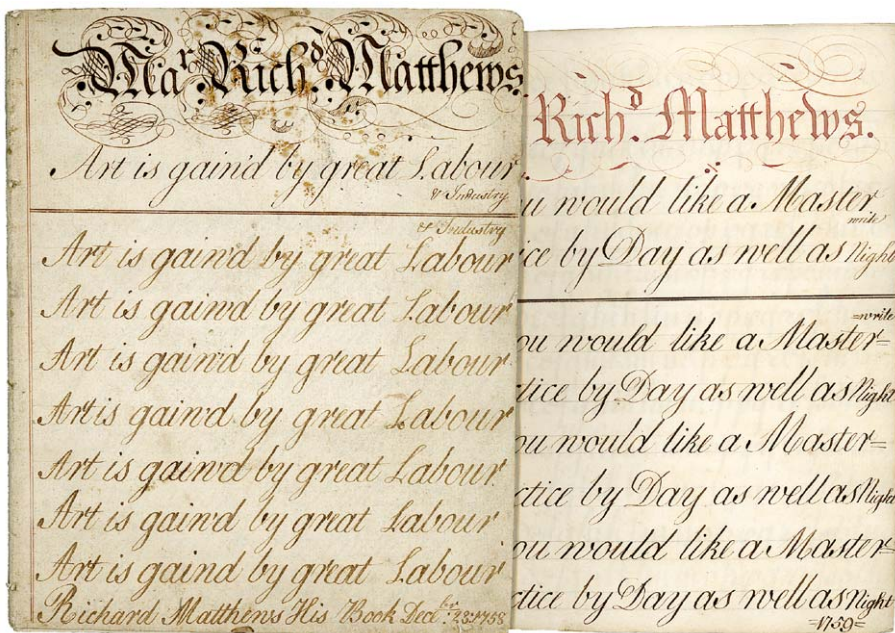 Mar. Richd. Matthews.
Art is gain'd by great Labour
& Industry
& Industry
Art is gain'd by great Labour
Art is gain'd by great Labour
Art is gain'd by great Labour
Art is gain'd by great Labour
Art is gain'd by great Labour
Art is gain'd by great Labour
Art is gaind by great Labour
Richard Matthews His Book Decbr. 23: 1758
Richd. Matthews.
ou would like a Master
write
tice by Day as well as Night
=write
ou would like a Master=
ctice by Day as well as Night
ou would like a Master=
ctice by Day as well as Night
ou would like a Master=
ctice by Day as well as Night
=1759=